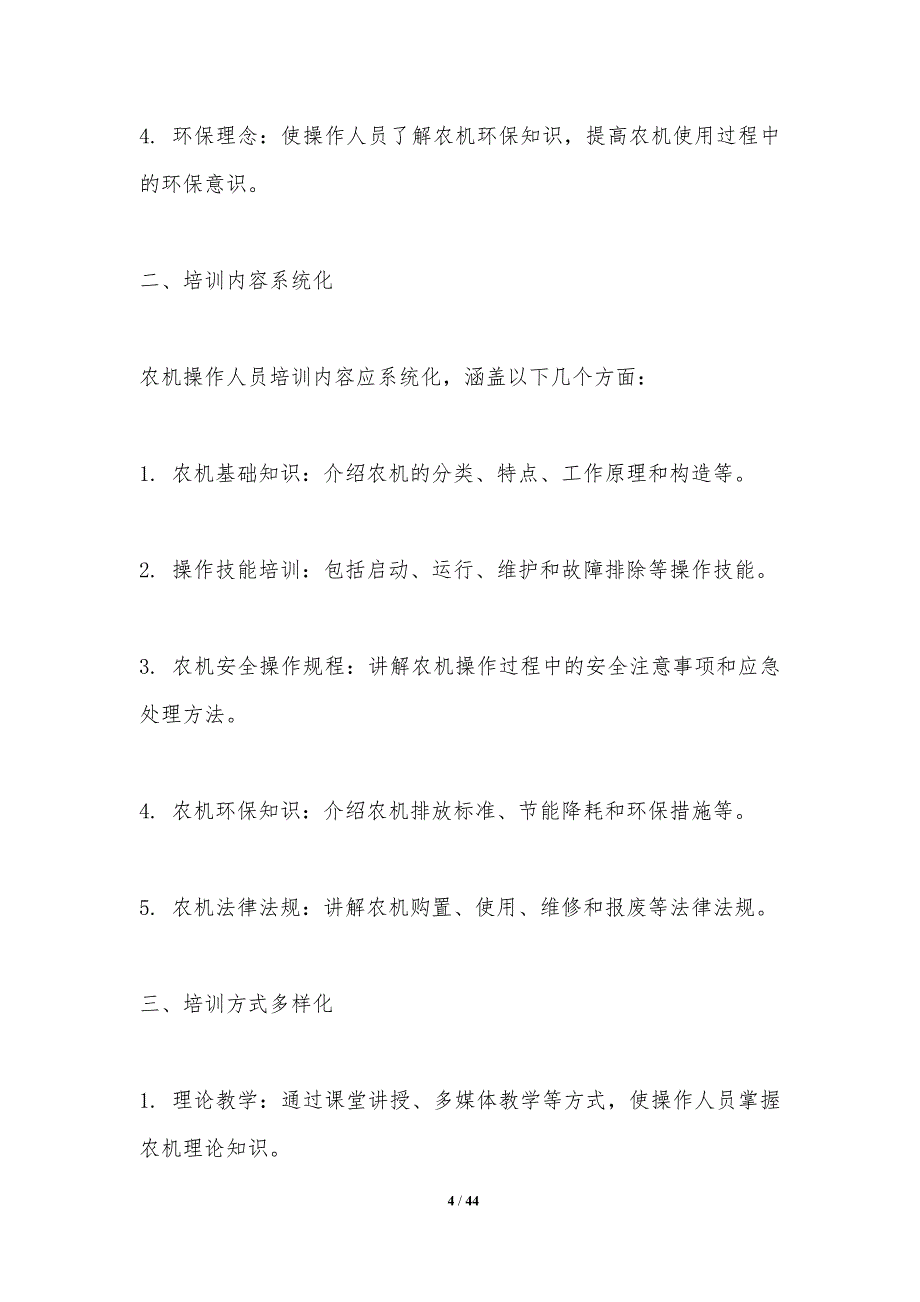 4. 环保理念：使操作人员了解农机环保知识，提高农机使用过程中
的环保意识。
二、培训内容系统化
农机操作人员培训内容应系统化，涵盖以下几个方面：
1. 农机基础知识：介绍农机的分类、特点、工作原理和构造等。
2. 操作技能培训：包括启动、运行、维护和故障排除等操作技能。
3. 农机安全操作规程：讲解农机操作过程中的安全注意事项和应急
处理方法。
4. 农机环保知识：介绍农机排放标准、节能降耗和环保措施等。
5. 农机法律法规：讲解农机购置、使用、维修和报废等法律法规。
三、培训方式多样化
1. 理论教学：通过课堂讲授、多媒体教学等方式，使操作人员掌握
农机理论知识。
4 / 44